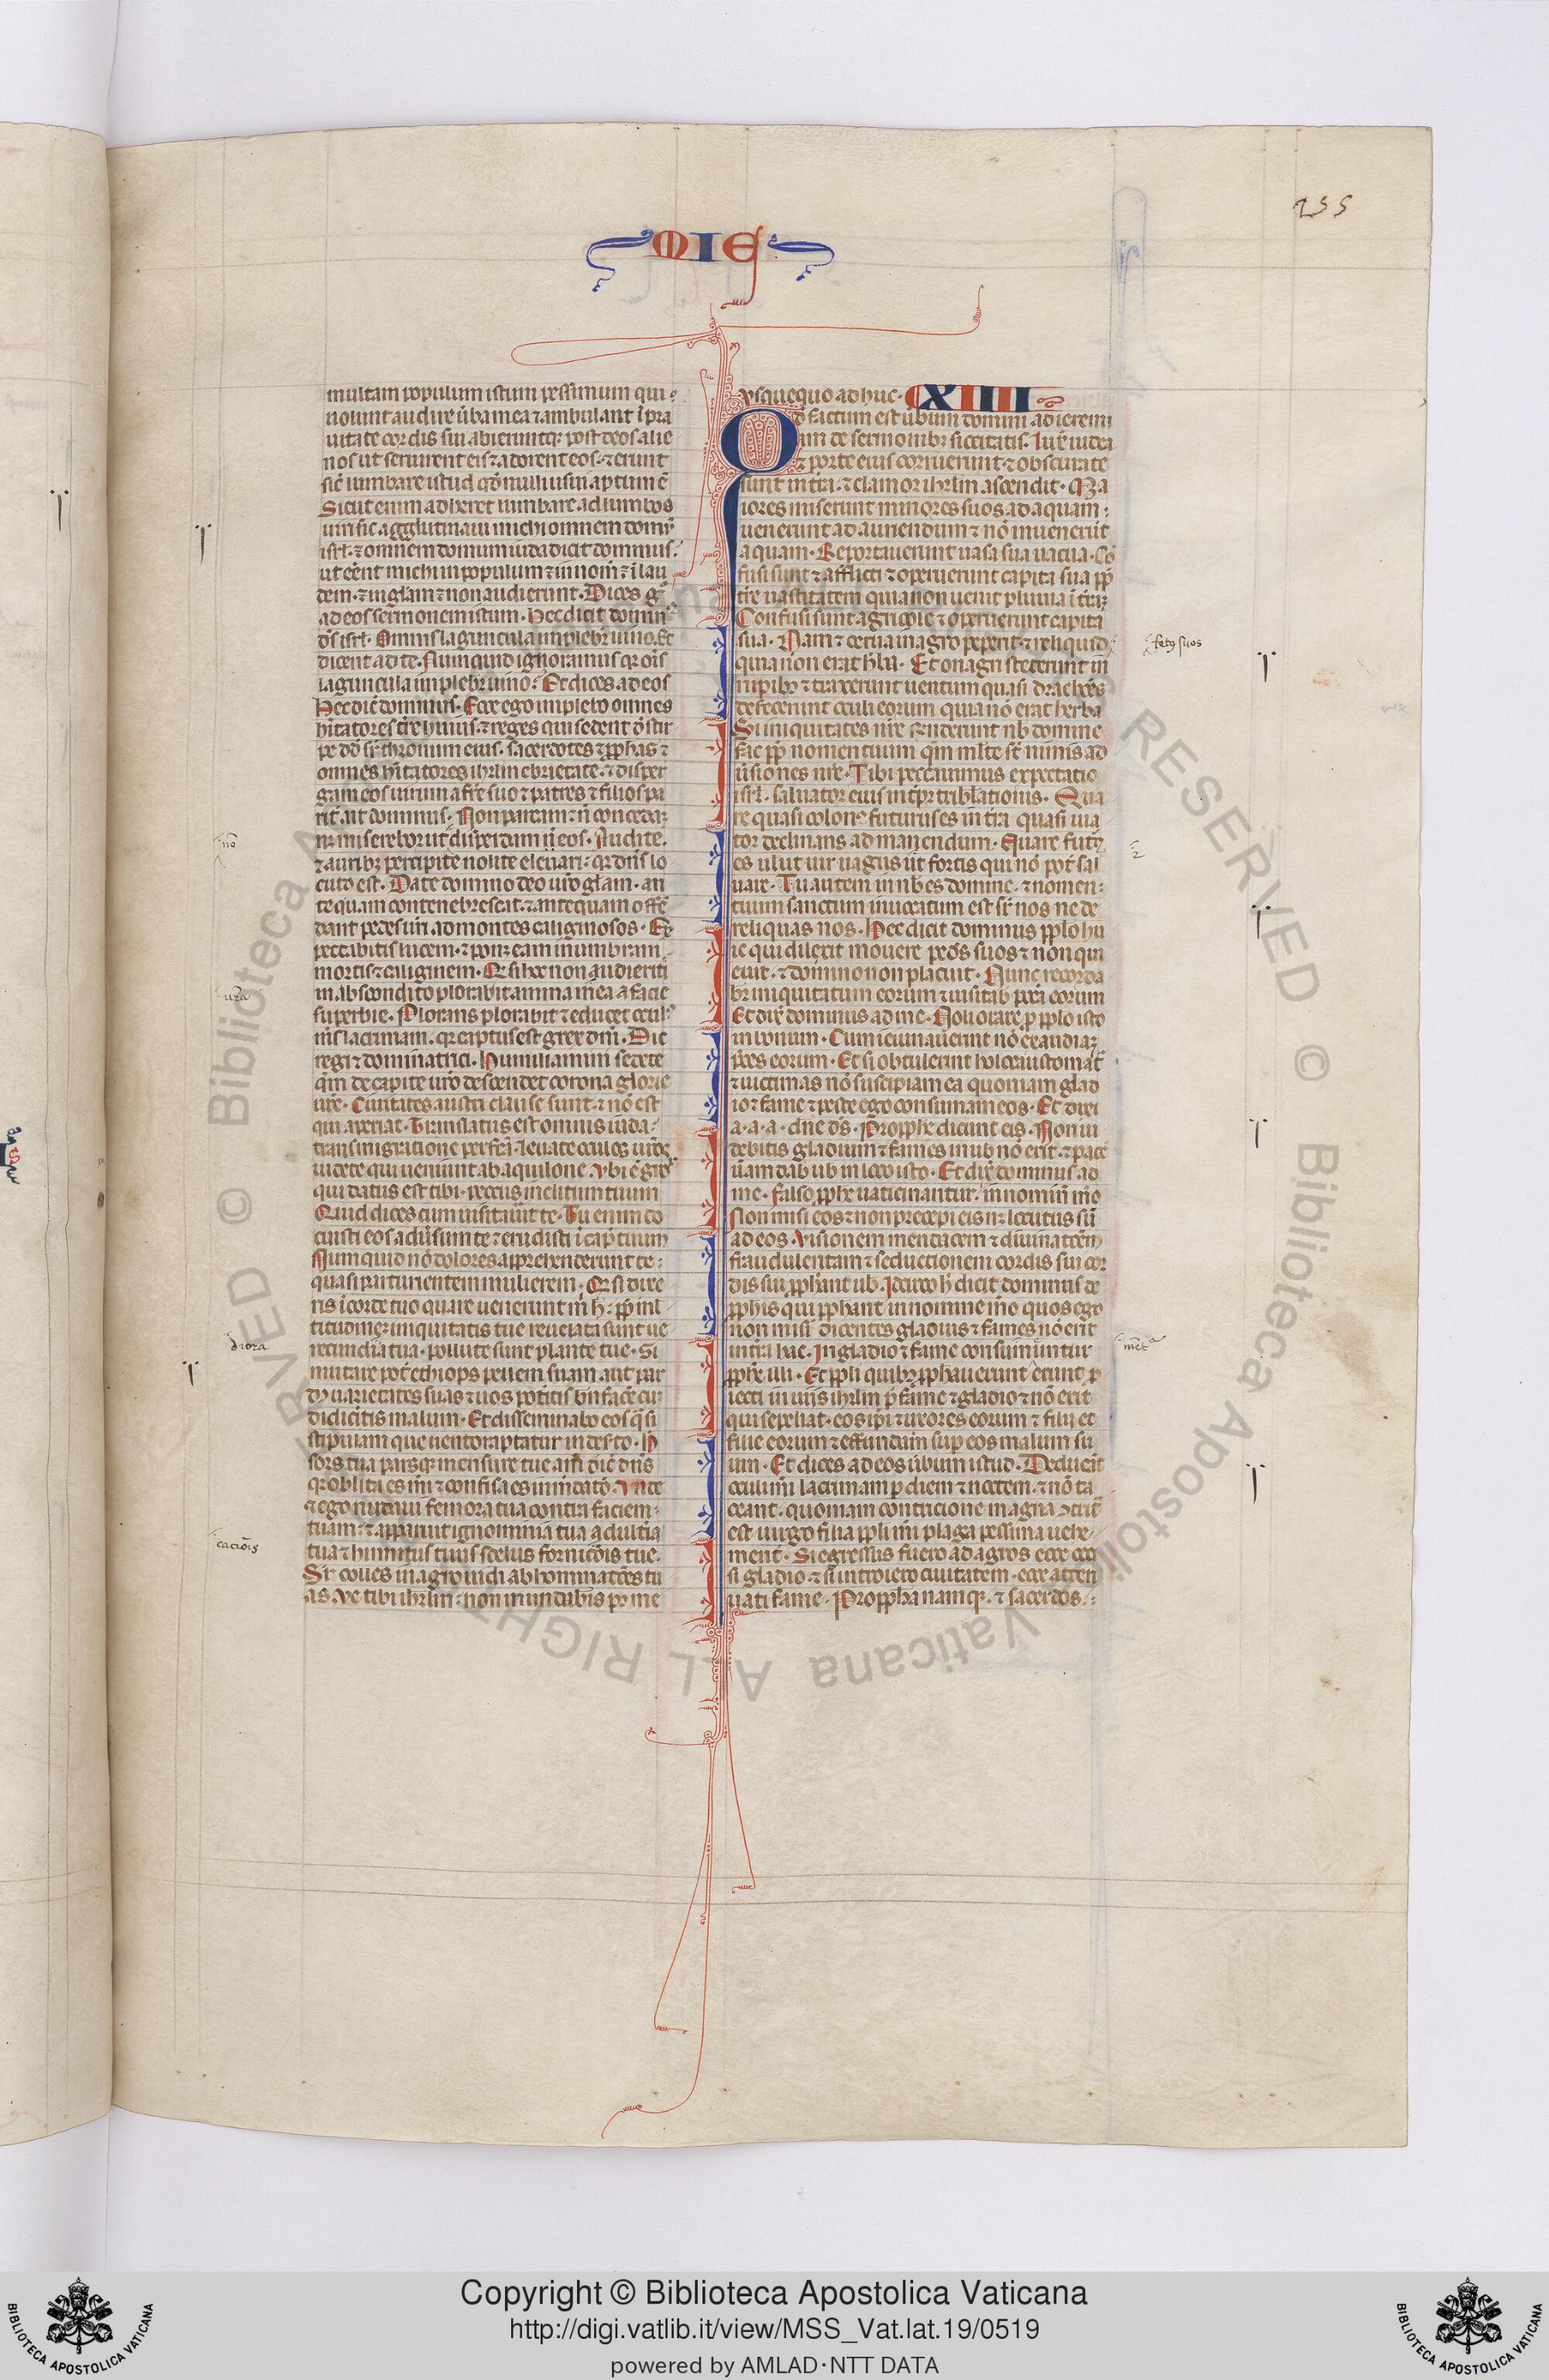 255
MIE
multam populum istum pessimum qui
nolunt audire ũba mea ⁊ ambulant ĩ pra
uitate cordis sui abieruntq; post deos alie
nos ut seruirent eis ⁊ adorent eos. ⁊ erunt
sic̃ lumbare istud qd̃ nulli usui aptum ẽ
Sicut enim adheret lumbare ad lumbos
uiri sic agglutinaui michi omnem domũ
isrl̃. ⁊ omnem domum iuda dicit dominus.
ut eẽnt michi in populum ⁊ in nom̃ ⁊ ĩ lau
dem. ⁊ in gl̃am ⁊ non audierunt. Dices gͦ
ad eos sermonem istum. Hec dicit domin9
ds̃ isrl̃. Omnis laguncula implebr̃ uino. Et
dicent ad te. Nunquid ignoramus qr̃ oĩs
laguncula implebr̃ uino. Et dices ad eos
Hec dic̃ dominus. Ecce ego implebo omnes
hĩtatores tr̃e huius. ⁊ reges qui sedent d̃ stir
pe dd̃ sr̃ thronum eius. sacerdotes ⁊ ꝓphas ⁊
omnes hĩtatores ihrl̃m ebrietate. ⁊ disper
gam eos uirum a fr̃e suo ⁊ patres ⁊ filios pa
rit̃. ait dominus. Non parcam ⁊ ñ concedaꝫ
nꝫ miserebor ut disperdam ĩ eos. Audite.
⁊ aurib; percipite nolite eleuari. qr̃ dñs lo
cut9 est. Date domino deo uro gl̃am. an
tequam contenebrescat. ⁊ antequam offẽ
dant pedes uri. ad montes caliginosos. Ex
pectabitis lucem. ⁊ ponꝫ eam in umbram
mortis. ⁊ caliginem. Qr̃ si hec non audierit̃
in abscondito plorabit anima mea a facie
superbie. Plorans plorabit ⁊ educet ocul9
ms̃ lacrimam. qr̃ captus est grex dni. Dic
regi ⁊ dominatrici. Humiliamini sedete
qm̃ de capite uro descendet corona glorie
ure. Ciuitates austri clause sunt. ⁊ nõ est
qui aperiat. Translatus est omnis iuda.
transmigratione perfc̃a. leuate oculos uros
uidete qui uenitis ab aquilone. Vbi ẽ grex
qui datus est tibi. pecus inclitum tuum
Quid dices cum uisitauit̃ te. Tu enim do
cuisti eos aduisum te ⁊ erudisti ĩ cap̃ tuum
Numquid nõ dolores apprehenderunt te.
quasi parturientem mulierem. Qr̃ si dixe
ris ĩ corde tuo quare uenerunt m̃ h̃. ꝓp̃ ml̃
titudinẽ iniquitatis tue reuelata sunt ue
recundia tua. pollute sunt plante tue. Si
mutare pot̃ ethiops pellem suam aut par
d9 uarietates suas ⁊ uos potitis bñ facẽ cũ
didicitis malum. Et disseminabo eos qͣ si
stipulam que uento raptatur in dẽsto. H̃
sors tua parsq; mensure tue a m̃ dic̃ dñs
qr̃ oblita es mi ⁊ confisa es in mendatio. Vnde
⁊ ego nudaui femora tua contra faciem
tuam. ⁊ apparuit ignominia tua adulteria
tua ⁊ hinnitus tuus scelus fornicõis tue.
Sr̃ colles in agro uidi abhominatões tu
as. Ve tibi ihrl̃m non mundabis p9 me
vsquequo adhuc. XIIII
Qd̃ factum est ũbum domini ad ierem
iam de sermonib; siccitatis. Lux̃ iudea
⁊ porte eius corruerunt. ⁊ obscurate
sunt in tr̃a. ⁊ clamor ihrl̃m ascendit. Ma
iores miserunt minores suos ad aquam.
uenerunt ad auriendum ⁊ nõ inuenerũt
aquam. Reportauerunt uasa sua uacua. Cõ
fusi sunt ⁊ afflicti ⁊ operuerunt capita sua ꝓp̃
tr̃e uastitatem quia non uenit pluuia ĩ tr̃aꝫ
Confusi sunt agricole ⁊ operuerunt capita
sua. Nam ⁊ cerua in agro peperit. ⁊ reliquid
quia non erat hr̃ba. Et onagri steterunt in
rupib; ⁊ traxerunt uentum quasi dracões
defecerunt oculi eorum quia nõ erat herba
Si iniquitates nr̃e rñderunt nb̃ domine
fac ꝓp̃ nomen tuum qm̃ ml̃te st̃ nimis ad
uisiones nr̃e. Tibi peccauimus expectatio
isrl̃. saluator eius in tpr̃ tribl̃ationis. Qua
re quasi colon9 futurus es in tr̃a quasi uia
tor declinans ad manendum. Quare futr9
es ulut uir uagus ut̃ fortis qui nõ pot̃ sal
uare. Tu autem in nb̃ es domine. ⁊ nomen
tuum sanctum inuocatum est sr̃ nos ne de
reliquas nos. Hec dicit dominus pp̃lo hu
ic qui dilexit mouere pedes suos ⁊ non qui
euit. ⁊ domino non placuit. Nunc recorda
br̃ iniquitatum eorum ⁊ uisitab̃ pecc̃a eorum
Et dix̃ dominus ad me. Noli orare ꝓ pp̃lo isto
in bonum. Cum ieiunauerint nõ exaudiaꝫ
p̃ces eorum. Et si obtulerint holocaustomat̃
⁊ uictimas nõ suscipiam ea quoniam glad
io ⁊ fame ⁊ peste ego consumam eos. Et dixi
a. a. a. dñe ds̃. Prophe dicunt eis. Non ui
debitis gladium ⁊ fames in ub̃ nõ erit. ⁊ pacẽ
ueram dab̃ ub̃ in loco isto. Et dix̃ dominus ad
me. Falso ꝓphe uaticinantur. in nomĩe m̃o
Non misi eos ⁊ non precepi eis nꝫ locutus sũ
ad eos. Visionem mendacem ⁊ diuinatõem
fraudulentam ⁊ seductionem cordis sui cor
dis sui ꝓphant ub̃. Idcirco h̃ dicit dominus de
ꝓphis qui ꝓphant in nomine m̃o quos ego
non misi dicentes gladius ⁊ fames nõ erit
in tr̃a hac. In gladio ⁊ fame consumuntur
ꝓphe illi. Et pp̃li quib; ꝓphauerunt erunt ꝓ
iecti in uijs ihrl̃m p̃ fame ⁊ gladio ⁊ nõ erit
qui sepeliat. eos ip̃i ⁊ uxores eorum ⁊ filij et
filie eorum ⁊ effundam sup eos malum su
um. Et dices ad eos ũbum istud. Deducãt
oculi m̃i lacrimam p diem ⁊ noctem. ⁊ nõ ta
ceant. quoniam contricione magna ↄtrit̃
est uirgo filia pp̃li mi plaga pessima uehe
ment̃. Si egressus fuero ad agros ecce occi
si gladio. ⁊ si introiero ciuitatem. ecce atten
uati fame. Propha namq;. ⁊ sacerdos.
nõ
ura
diora
caciõis
fetus suos
Copyright © Biblioteca Apostolica Vaticana
http://digi.vatlib.it/view/MSS_Vat.lat.19/0519
powered by AMLAD·NTT DATA
BIBLIOTECA APOSTOLICA VATICANA
BIBLIOTECA APOSTOLICA VATICANA
© Biblioteca Apostolica Vaticana ALL RIGHTS RESERVED